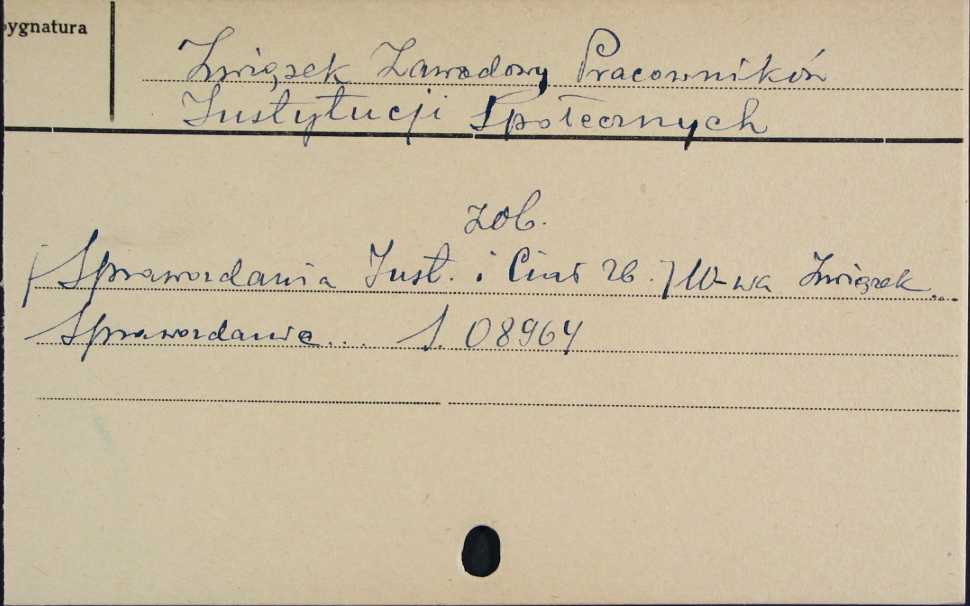 Sygnatura
Związek Zawodowy Pracowników
Instytucji Społecznych
zob.
/Sprawozdania Inst. i Ciał zb./ W-wa Związek...
Sprawozdanie... S. 08964